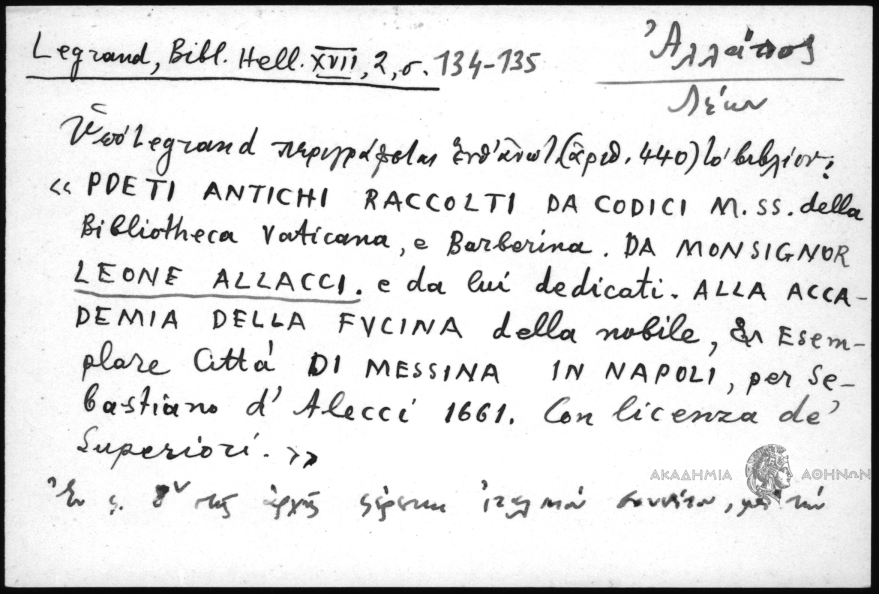 Legrand, Bibl. Hell. XVII, 2, σ. 134-135
Ἀλλάτιος
Λέων
Ὑπό Legrand περιγράφεται ἐνθ' ἀνωτ. (ἀριθ. 440) τό βιβλίον:
« POETI ANTICHI RACCOLTI DA CODICI M.SS. della
Bibliotheca Vaticana, e Barberina. DA MONSIGNOR
LEONE ALLACCI. e da lui dedicati. ALLA ACCA-
DEMIA DELLA FVCINA della nobile, & Esem-
plare Città DI MESSINA IN NAPOLI, per Se-
bastiano d' Alecci 1661. Con licenza de'
Superiori. »
ΑΚΑΔΗΜΙΑ ΑΘΗΝΩΝ
Ἐν τῆς ἀρχῆς